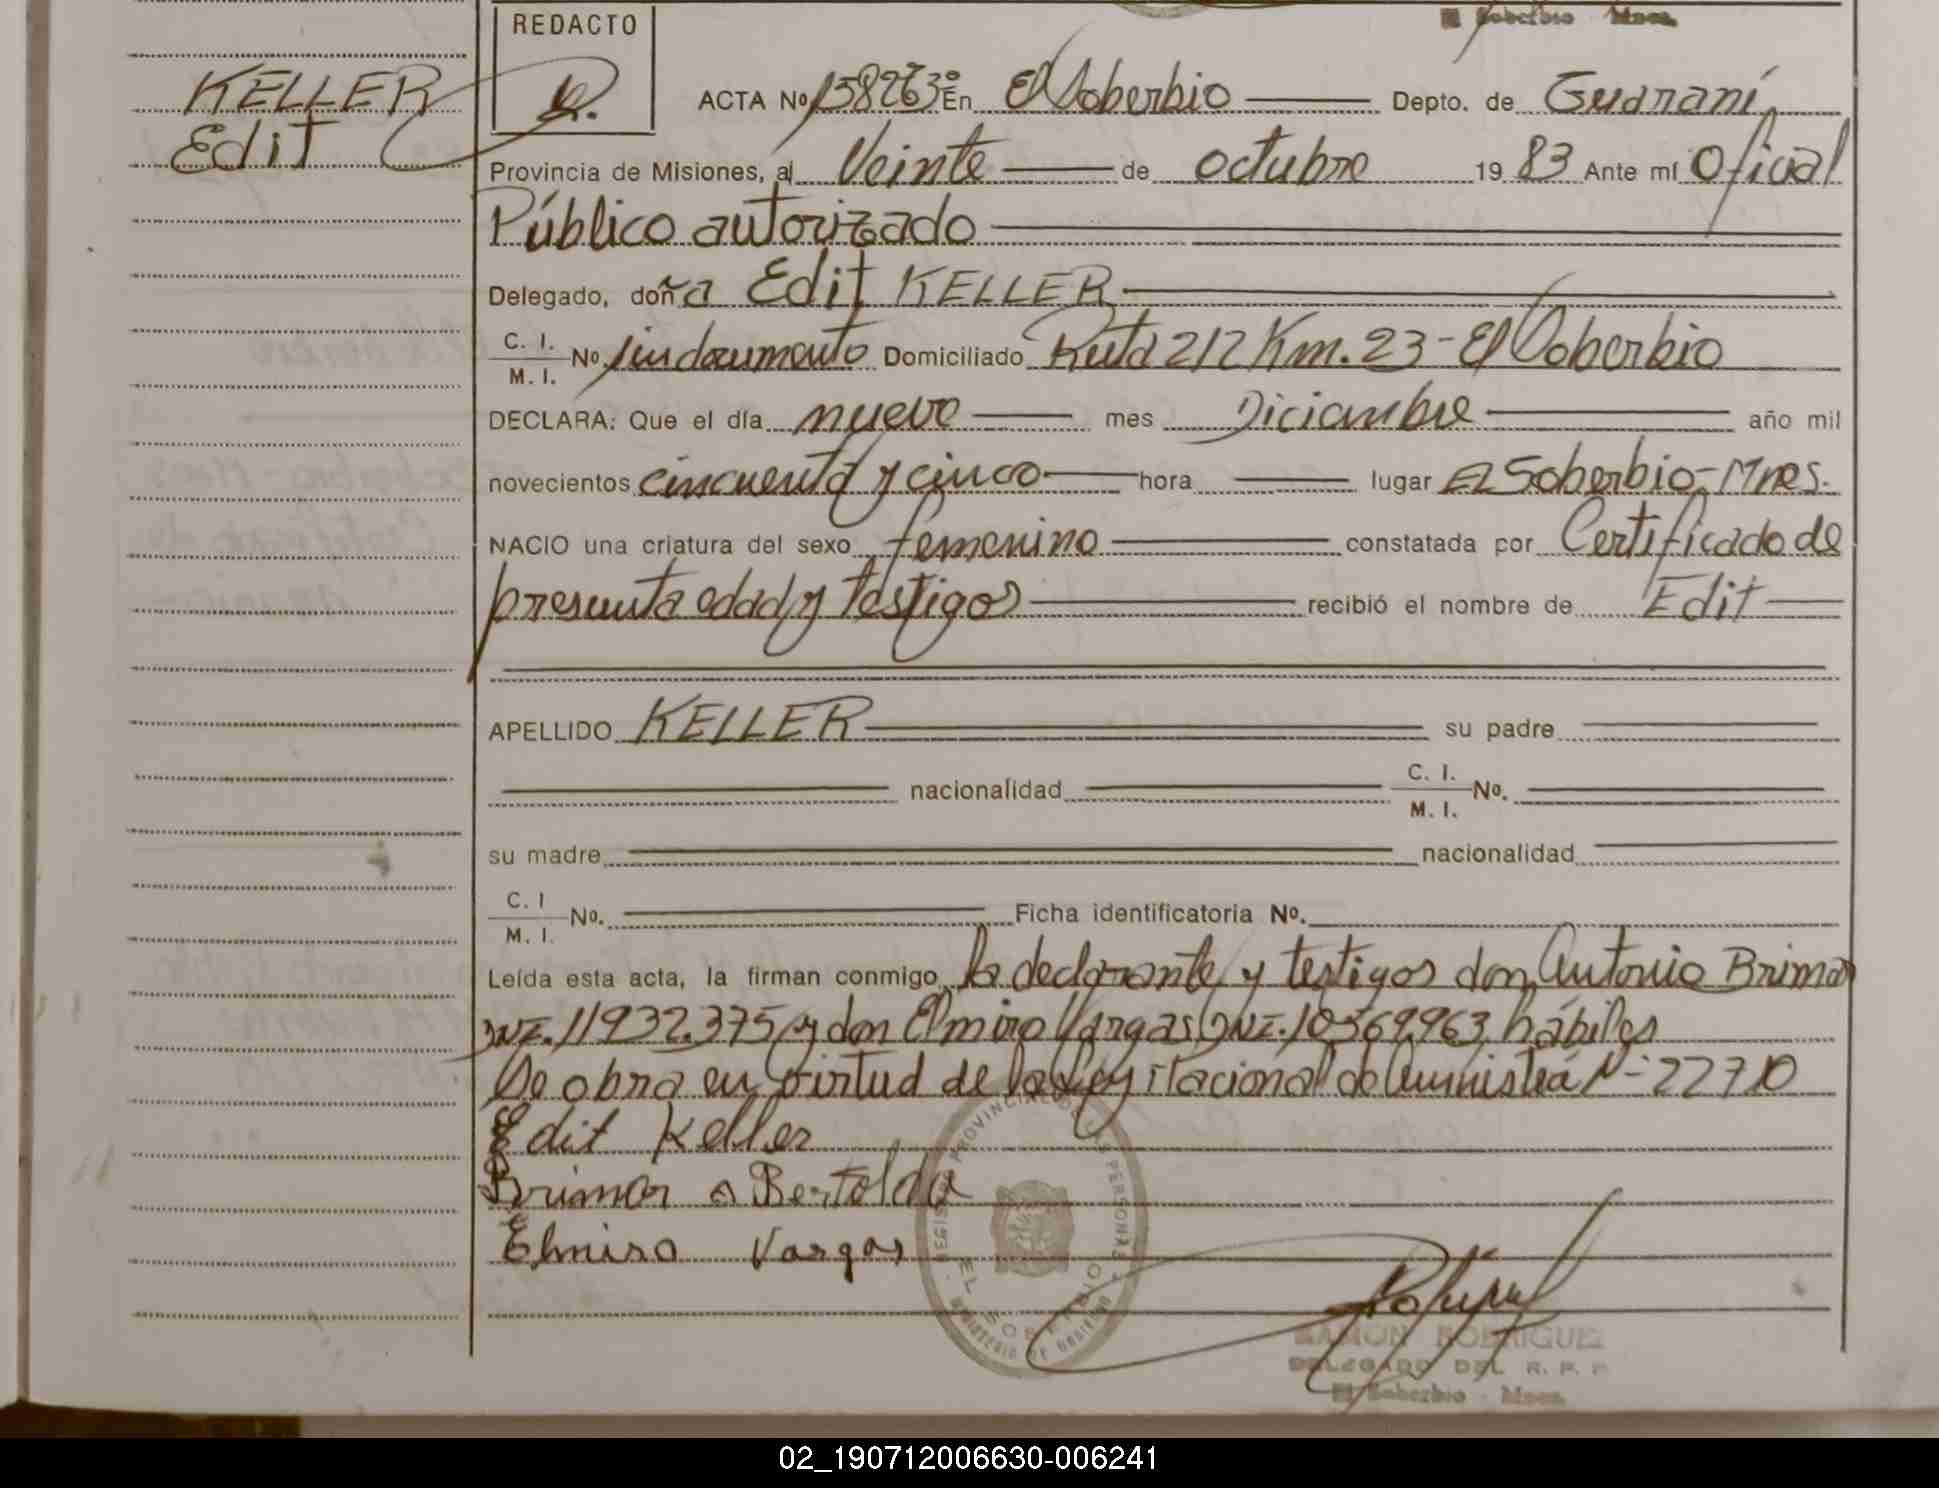 REDACTO
El Soberbio Mnes.
KELLER
Edit
ACTA Nº 158263º En El Soberbio Depto. de Guaraní,
Provincia de Misiones, al Veinte de octubre 1983 Ante mí Oficial
Público autorizado
Delegado, doña Edit KELLER
C. I.
M. I. Nº sin documento Domiciliado Ruta 212 Km. 23 - El Soberbio
DECLARA: Que el día nueve mes Diciembre año mil
novecientos cincuenta y cinco hora lugar El Soberbio - Mnes.
NACIO una criatura del sexo femenino constatada por Certificado de
presunta edad y testigos recibió el nombre de Edit
APELLIDO KELLER su padre
nacionalidad C. I.
M. I. Nº.
su madre nacionalidad
C. I
M. I. Nº. Ficha identificatoria Nº.
Leída esta acta, la firman conmigo la declarante y testigos don Antonio Brimor
DNI. 11932.375 y don Elmiro Vargas DNI. 10369.963, hábiles
Se obra en virtud de la Ley Nacional de Amnistía Nº 22710
Edit Keller
Brimor Bertoldo
Elmiro Vargas
REGISTRO PROVINCIAL DE LAS PERSONAS
EL SOBERBIO
MINISTERIO DE GOBIERNO
RAMON RODRIGUEZ
DELEGADO DEL R. P. P
El Soberbio - Mnes.
02_190712006630-006241